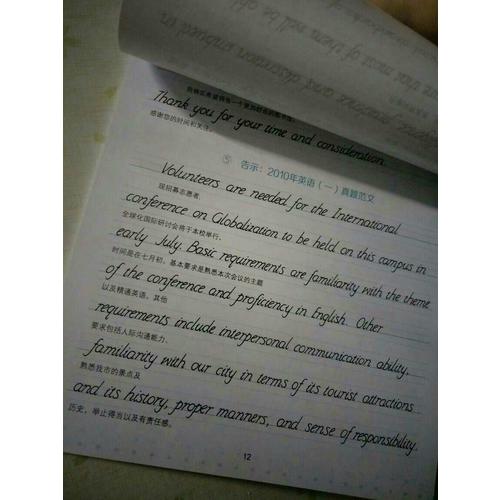 我确实希望拥有一个更加舒适的图书馆。
Thank you for your time and consideration.
感谢您的时间和关注。
⑤ 告示：2010年英语（一）真题范文
Volunteers are needed for the International
现招募志愿者
conference on Globalization to be held on this campus in
全球化国际研讨会将于本校举行，
early July. Basic requirements are familiarity with the theme
时间是在七月初。基本要求是熟悉本次会议的主题
of the conference and proficiency in English. Other
以及精通英语。其他
requirements include interpersonal communication ability,
要求包括人际沟通能力、
familiarity with our city in terms of its tourist attractions
熟悉我市的景点及
and its history, proper manners, and sense of responsibility.
历史，举止得当以及有责任感。
12